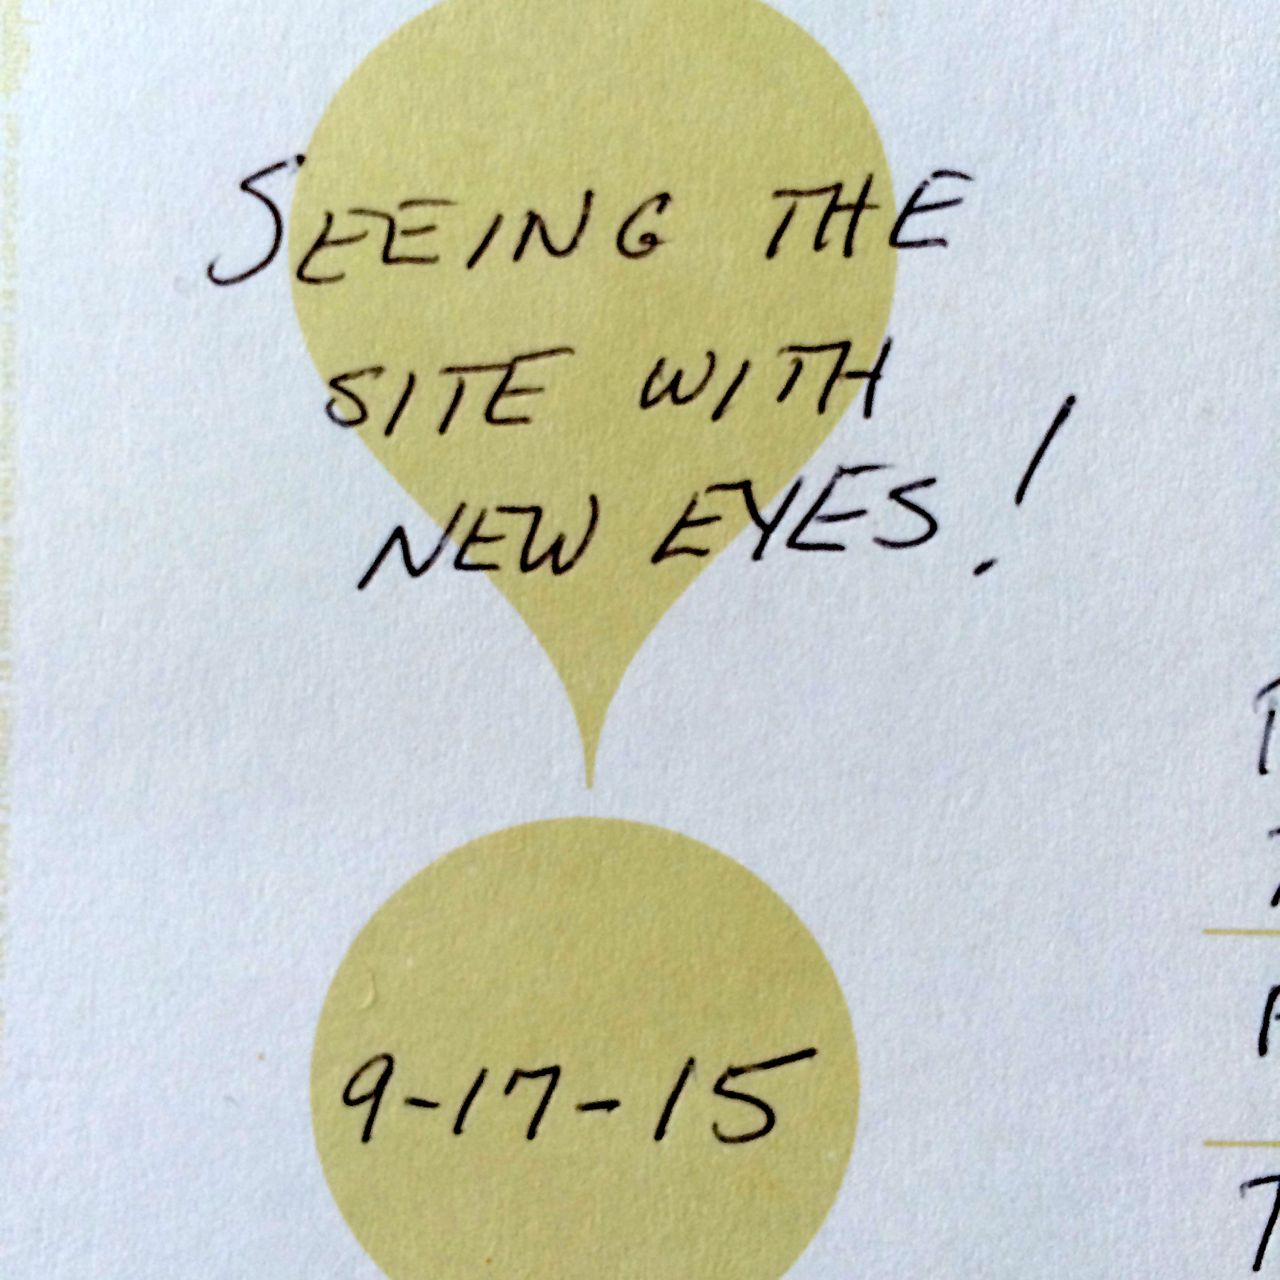 SEEING THE
SITE WITH
NEW EYES!
9-17-15